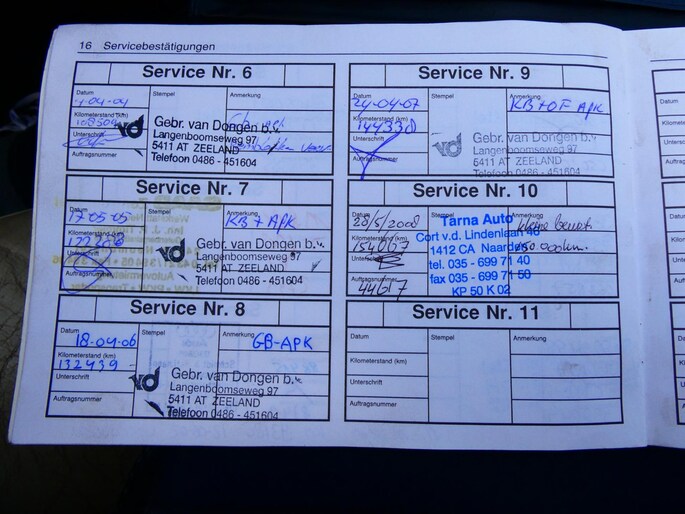 16 Servicebestätigungen
Service Nr. 6
Datum Stempel Anmerkung
-04-04
Kilometerstand (km)
Unterschrift
Auftragsnummer
vd Gebr. van Dongen b.v.
Langenboomseweg 97
5411 AT ZEELAND
Telefoon 0486 - 451604
Service Nr. 7
Datum Stempel Anmerkung
17-05-05 KB + APK
Kilometerstand (km)
Unterschrift
Auftragsnummer
vd Gebr. van Dongen b.v.
Langenboomseweg 97
5411 AT ZEELAND
Telefoon 0486 - 451604
Service Nr. 8
Datum Stempel Anmerkung
18-04-06 GB-APK
Kilometerstand (km)
132439
Unterschrift
Auftragsnummer
vd Gebr. van Dongen b.v.
Langenboomseweg 97
5411 AT ZEELAND
Telefoon 0486 - 451604
Service Nr. 9
Datum Stempel Anmerkung
24-04-07 KB + OF APK
Kilometerstand (km)
144338
Unterschrift
Auftragsnummer
vd Gebr. van Dongen b.v.
Langenboomseweg 97
5411 AT ZEELAND
Telefoon 0486 - 451604
Service Nr. 10
Datum Anmerkung
28/5/2008 kleine beurt
Kilometerstand (km)
154007 150.000km.
Auftragsnummer
44617
Tarna Auto
Cort v.d. Lindenlaan 46
1412 CA Naarden
tel. 035 - 699 71 40
fax 035 - 699 71 50
KP 50 K 02
Service Nr. 11
Datum Stempel Anmerkung
Kilometerstand (km)
Unterschrift
Auftragsnummer